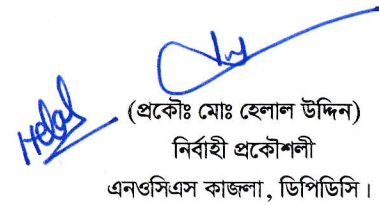 Helal
(প্রকৌঃ মোঃ হেলাল উদ্দিন)
নির্বাহী প্রকৌশলী
এনওসিএস কাজলা, ডিপিডিসি।